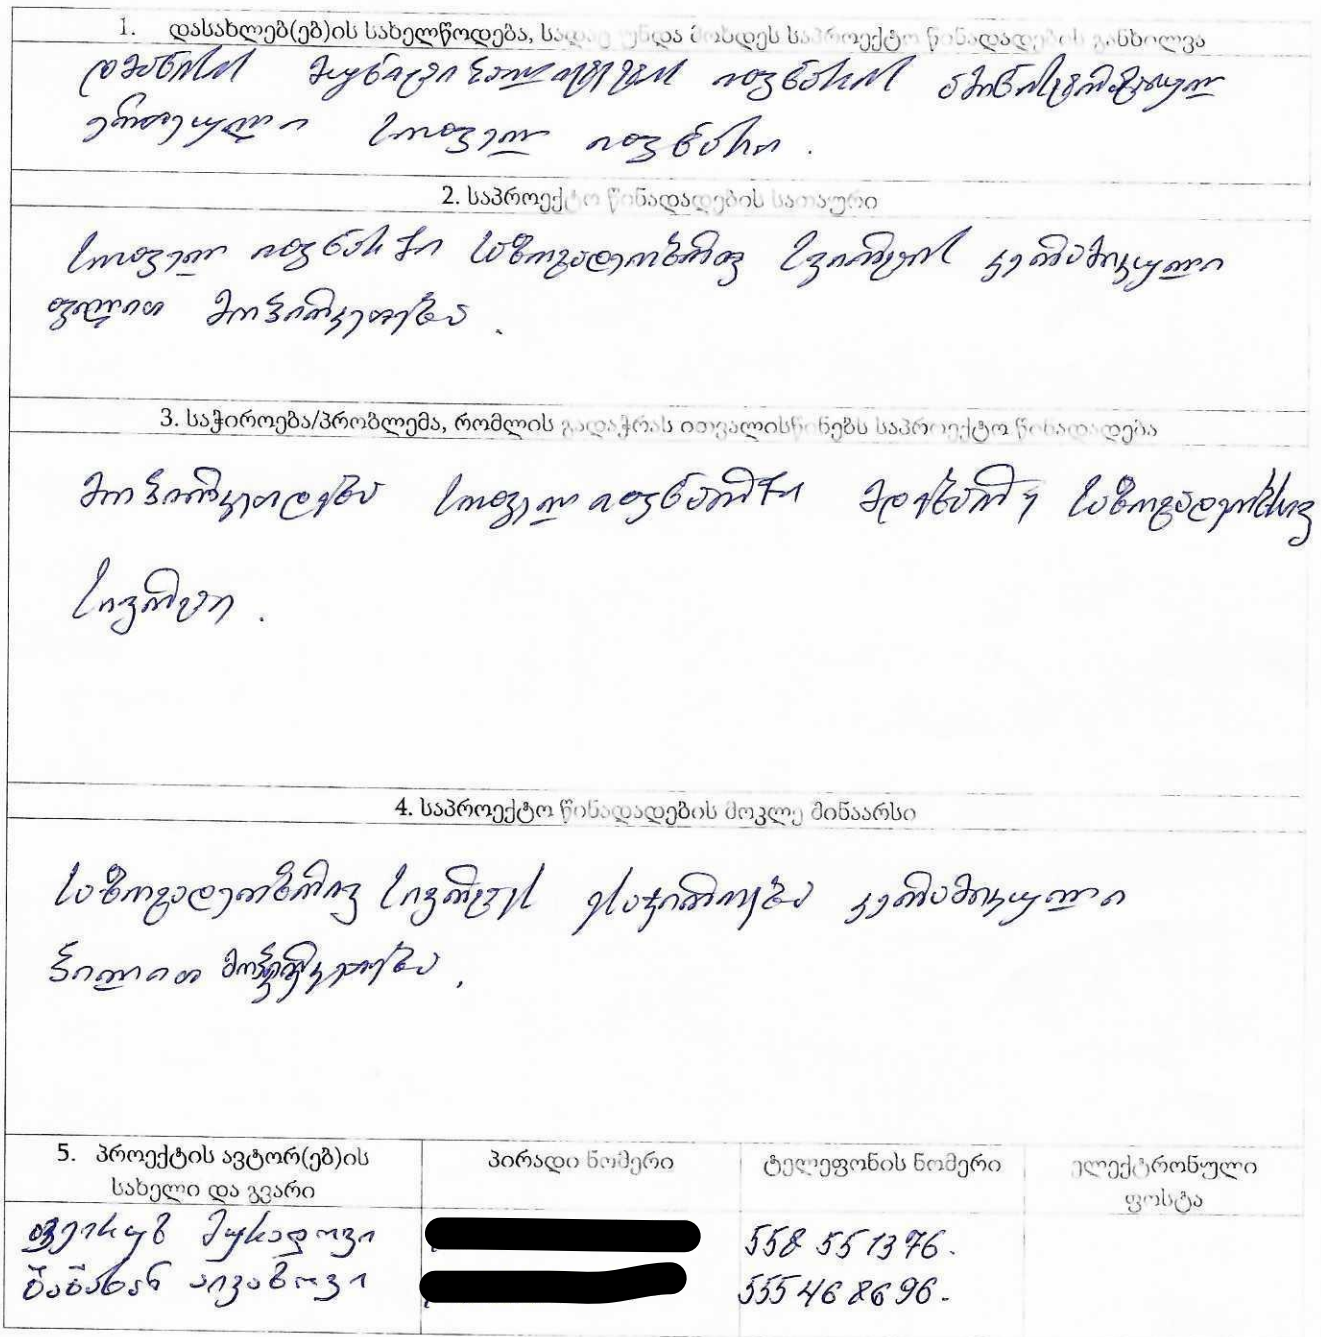 1. დასახლებ(ებ)ის სახელწოდება, სადაც უნდა მოხდეს საპროექტო წინადადების განხილვა
დმანისის მუნიციპალიტეტის იფნარის ამინისტრაციულ
ერთეული სოფელ იფნარი .
2. საპროექტო წინადადების სათაური
სოფელ იფნარში საზოგადოებრივ სვირცის კერამიკული
ფილით მოპირკეთება .
3. საჭიროება/პრობლემა, რომლის გადაჭრას ითვალისწინებს საპროექტო წინადადება
მოპირკეთდება სოფელ იფნარში მდებარე საზოგადოებრივ
სივრცე .
4. საპროექტო წინადადების მოკლე შინაარსი
საზოგადოებრივ სივრცეს ესაჭიროება კერამიკული
ფილით მოპირკეთება .
5. პროექტის ავტორ(ებ)ის
სახელი და გვარი
პირადი ნომერი
ტელეფონის ნომერი
ელექტრონული
ფოსტა
მურადოვი
558 551376.
ბაბახან აივაზოვი
555 46 86 96.